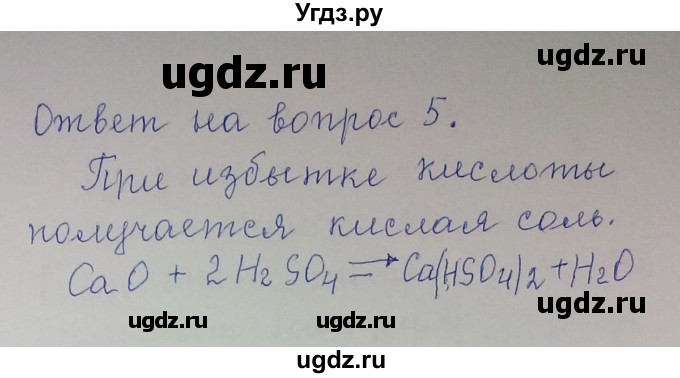 Угдз.ру
ugdz.ru ugdz.ru
Ответ на вопрос 5.
ugdz.ru ugdz.ru
При избытке кислоты
получается кислая соль.
CaO + 2H2SO4 ⇒ Ca(HSO4)2 + H2O
ugdz.ru ugdz.ru
ugdz.ru